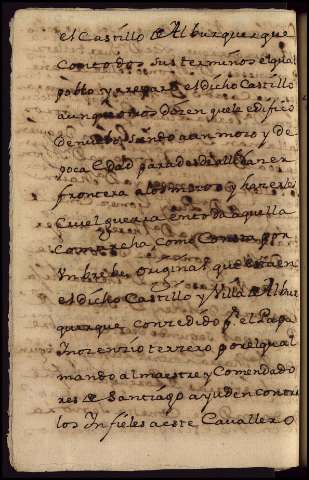 el Castillo de Alburquerque
con todos sus terminos el qual
poblo y reparo el dicho Castillo
aunque otros dizen que le edifico
de nuevo siendo aun moro y de
poca Edad para desde alli hazer
frontera a los moros y hazerles
cruel guerra en toda aquella
comarcha, como Consta por
Un brebe original que esta en
el dicho Castillo y Villa de Albur
querque concedido pr. el Papa
Inocenzio terzero por el qual
mando al maestre y Comendado
res de Santiago ayuden contra
los Infieles a este Cavallero